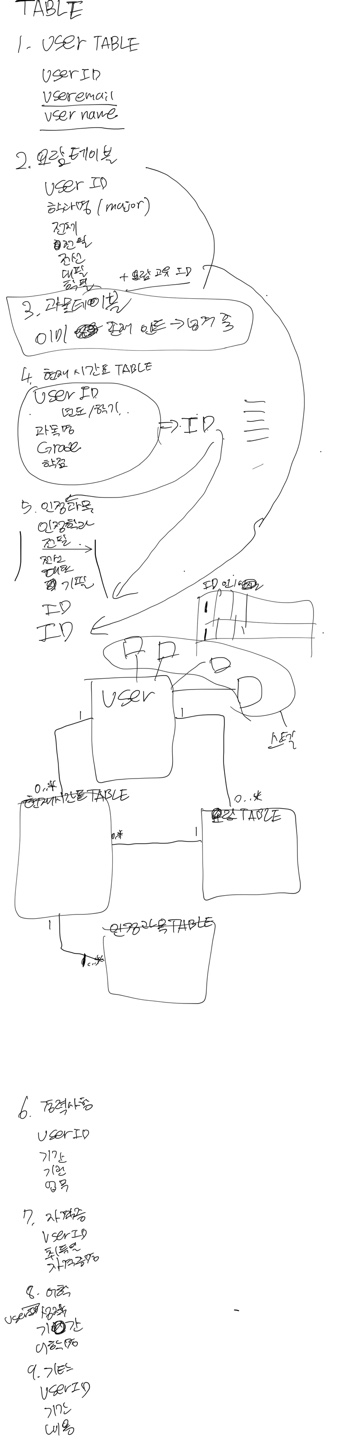 TABLE
1. User TABLE
User ID
User email
user name
2. 요람테이블
User ID
학과명 (major)
전체
전필
전선
대필
+ 요람 고유 ID
3. 과목테이블
이미 존재
4. 현재 시간표 TABLE
User ID
년도/학기
과목명
Grade
학점
⇒ ID
5. 인정과목
인정학과
전필
전선
기필
ID
ID
ID
User
1
1
스펙
0..*
0..*
현재시간표TABLE
요람TABLE
0..*
1
1
인정과목TABLE
1..*
6. 경력사항
User ID
기간
기관
업무
7. 자격증
User ID
취득일
자격증명
8. 어학
User ID
기간
어학명
9. 기타
User ID
기간
내용